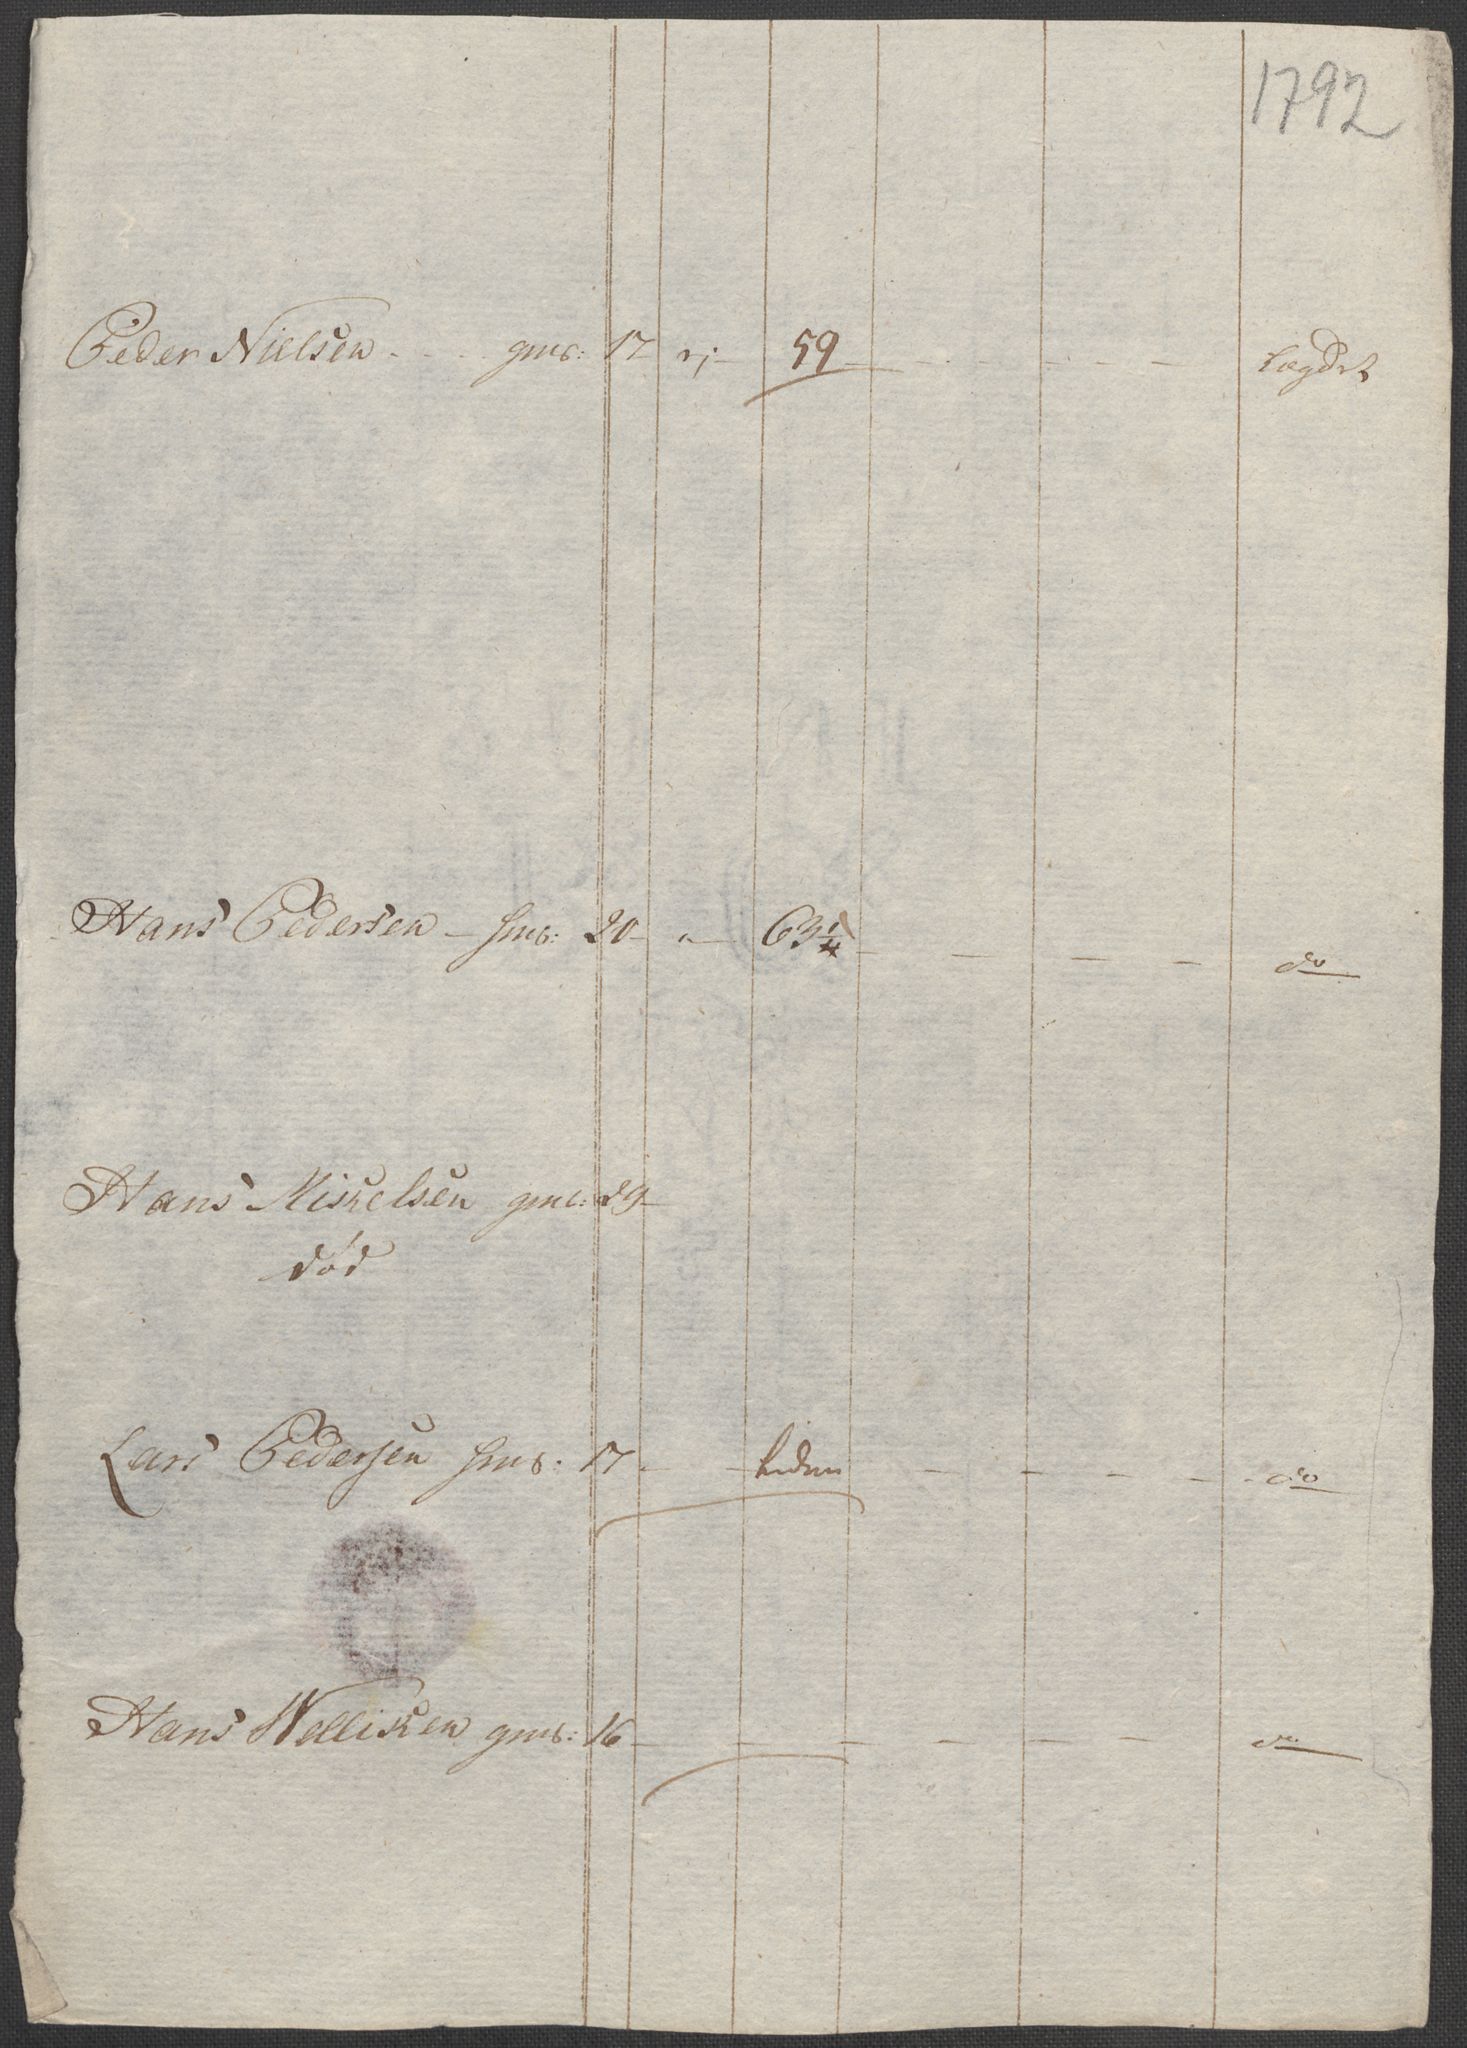 1792
Peder Nielsen - - - gml: 17 - 59 - - - - Lægdet
Hans Pedersen - gml: 20 - " - 63 1/4 - - - - do
Hans Mickelsen gml: 29
død
Lars Pedersen gml: 17 - - liden - - - - do
Hans Nellisen gml: 16 - - - - - - do